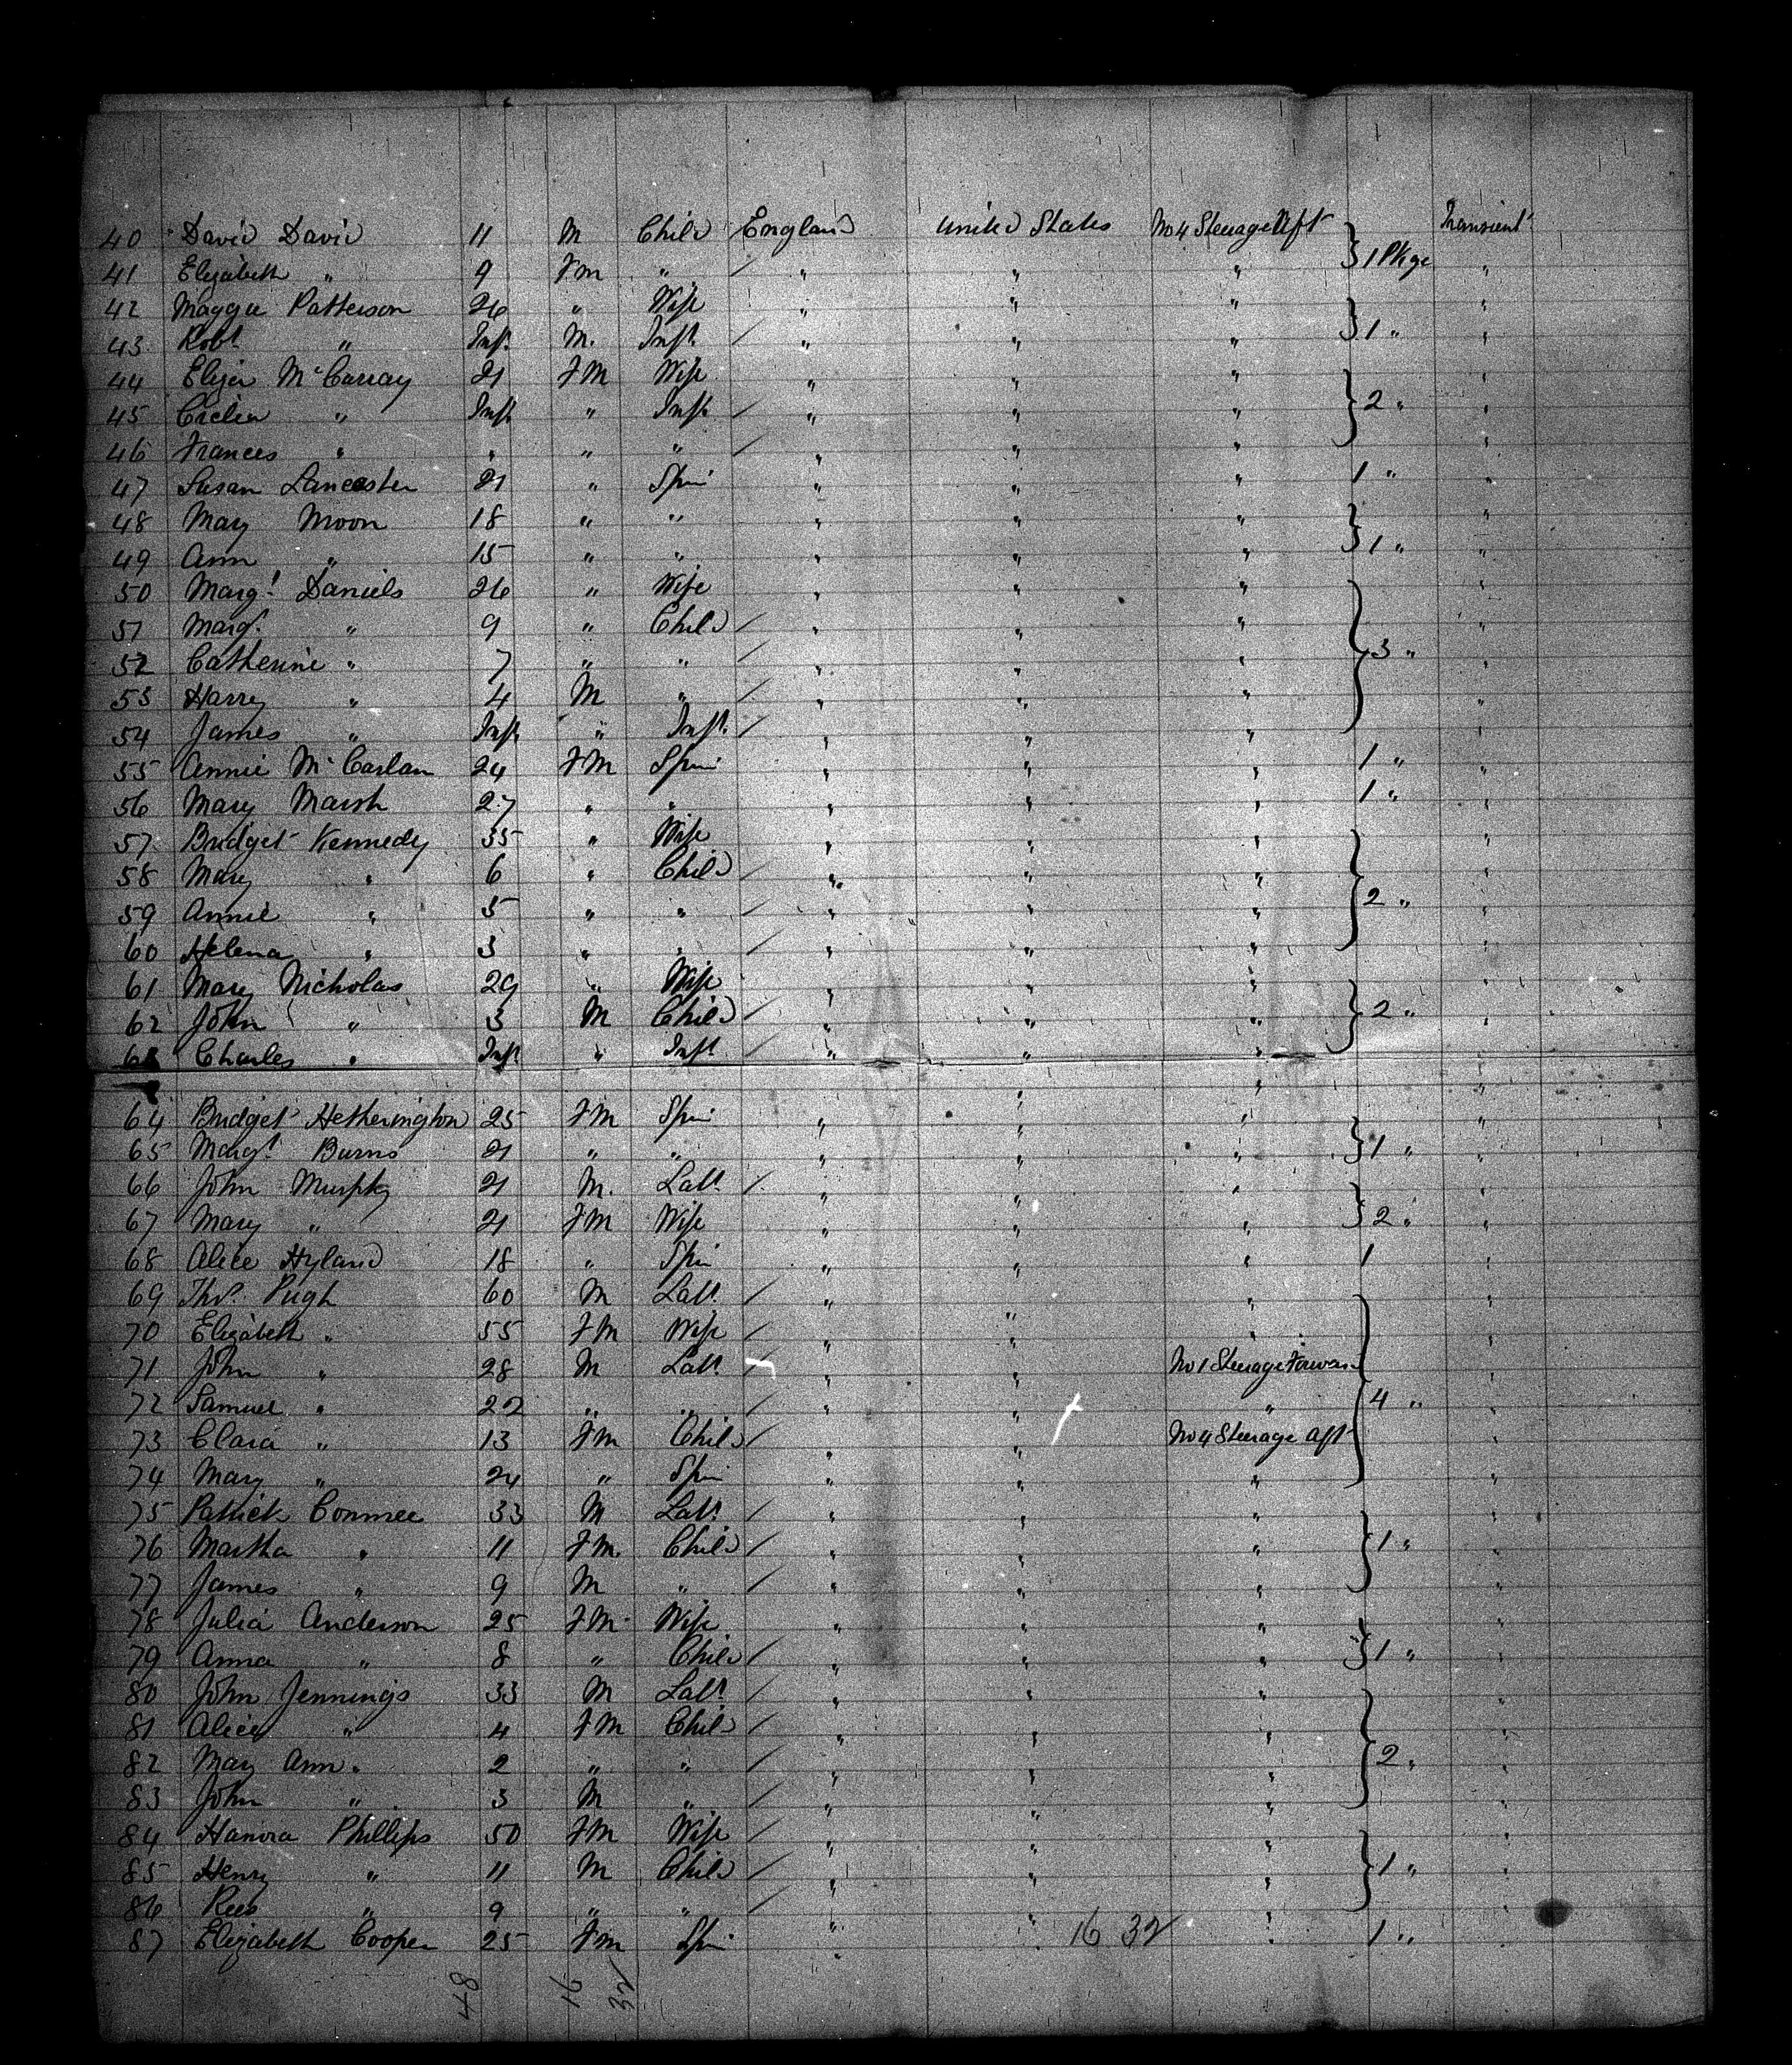 40 David David 11 M Child England United States No 4 Steerage Aft } 1 Pkge Transient
41 Elizabeth " 9 Fm " / " " " "
42 Maggie Patterson 26 " Wife " " " } 1 " "
43 Robt. " Inft. M. Inft. / " " " "
44 Eliza McCarray 21 FM Wife " " " } 2 " "
45 Cecelia " Inft " Inft / " " " "
46 Frances " " " " / " " " "
47 Susan Lancaster 21 " Spin " " " 1 " "
48 Mary Moon 18 " " " " " } 1 " "
49 Ann " 15 " " " " " "
50 Margt. Daniels 26 " Wife " " " } 3 " "
51 Margt. " 9 " Child / " " " "
52 Catherine " 7 " " / " " " "
53 Harry " 4 M " / " " " "
54 James " Inft " Inft. / " " " "
55 Annie McCarlan 24 FM Spin " " " 1 " "
56 Mary Marsh 27 " " " " " 1 " "
57 Bridget Kennedy 35 " Wife " " " } 2 " "
58 Mary " 6 " Child / " " " "
59 Annie " 5 " " / " " " "
60 Helena " 3 " " / " " " "
61 Mary Nicholas 29 " Wife " " " } 2 " "
62 John " 3 M Child / " " " "
63 Charles " Inft " Inft / " " " "
64 Bridget Hetherington 25 FM Spin " " " } 1 " "
65 Margt. Burns 21 " " " " " "
66 John Murphy 21 M. Labr. / " " " } 2 " "
67 Mary " 21 FM Wife " " " "
68 Alice Hyland 18 " Spin " " " 1 "
69 Thos. Pugh 60 M Labr. / " " " } 4 " "
70 Elizabeth " 55 FM Wife / " " " "
71 John " 28 M Labr. / " " No 1 Steerage Forward "
72 Samuel " 22 " " / " " " "
73 Clara " 13 Fm Child / " " No 4 Steerage Aft "
74 Mary " 24 " Spin " " " "
75 Patrick Conmee 33 M Labr. / " " " } 1 " "
76 Martha " 11 FM. Child / " " " "
77 James " 9 M " / " " " "
78 Julia Anderson 25 FM Wife " " " } 1 " "
79 Anna " 8 " Child / " " " "
80 John Jennings 33 M Labr. / " " " } 2 " "
81 Alice " 4 FM Child / " " " "
82 Mary Ann " 2 " " / " " " "
83 John " 3 M " / " " " "
84 Hanora Phillips 50 FM Wife / " " " } 1 " "
85 Henry " 11 M Child / " " " "
86 Rees " 9 " " / " " " "
87 Elizabeth Cooper 25 Fm Spin " " 16 32 " 1 " "
48 16 32